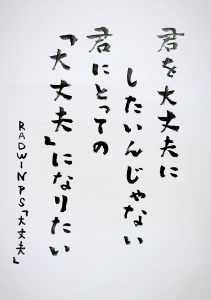 君を大丈夫に
したいんじゃない
君にとっての
「大丈夫」になりたい
RADWIMPS「大丈夫」